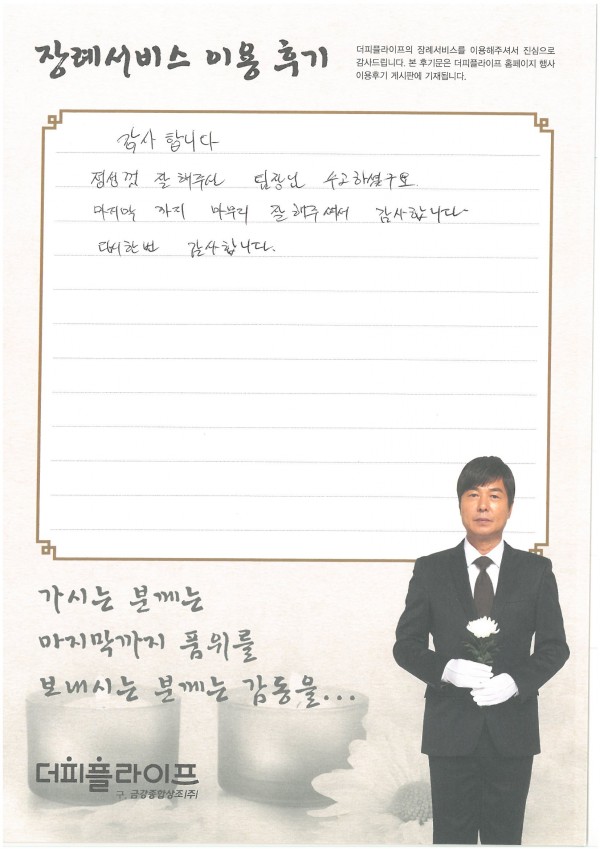 장례서비스 이용 후기
더피플라이프의 장례서비스를 이용해주셔서 진심으로
감사드립니다. 본 후기문은 더피플라이프 홈페이지 행사
이용후기 게시판에 기재됩니다.
감사 합니다
정성껏 잘 해주신 팀장님 수고하셨구요
마지막 까지 마무리 잘 해주셔서 감사합니다
다시한번 감사합니다.
가시는 분께는
마지막까지 품위를
보내시는 분께는 감동을...
더피플라이프
구. 금강종합상조(주)